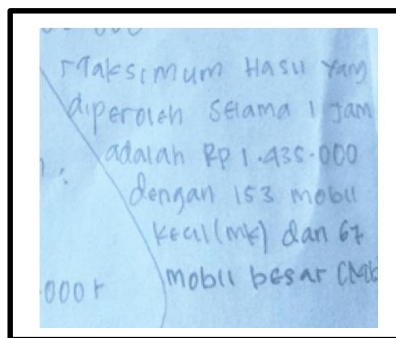 Maksimum Hasil yang
diperoleh selama 1 jam
adalah Rp 1.435.000
dengan 153 mobil
kecil (mk) dan 67
mobil besar (Mb
.000 +